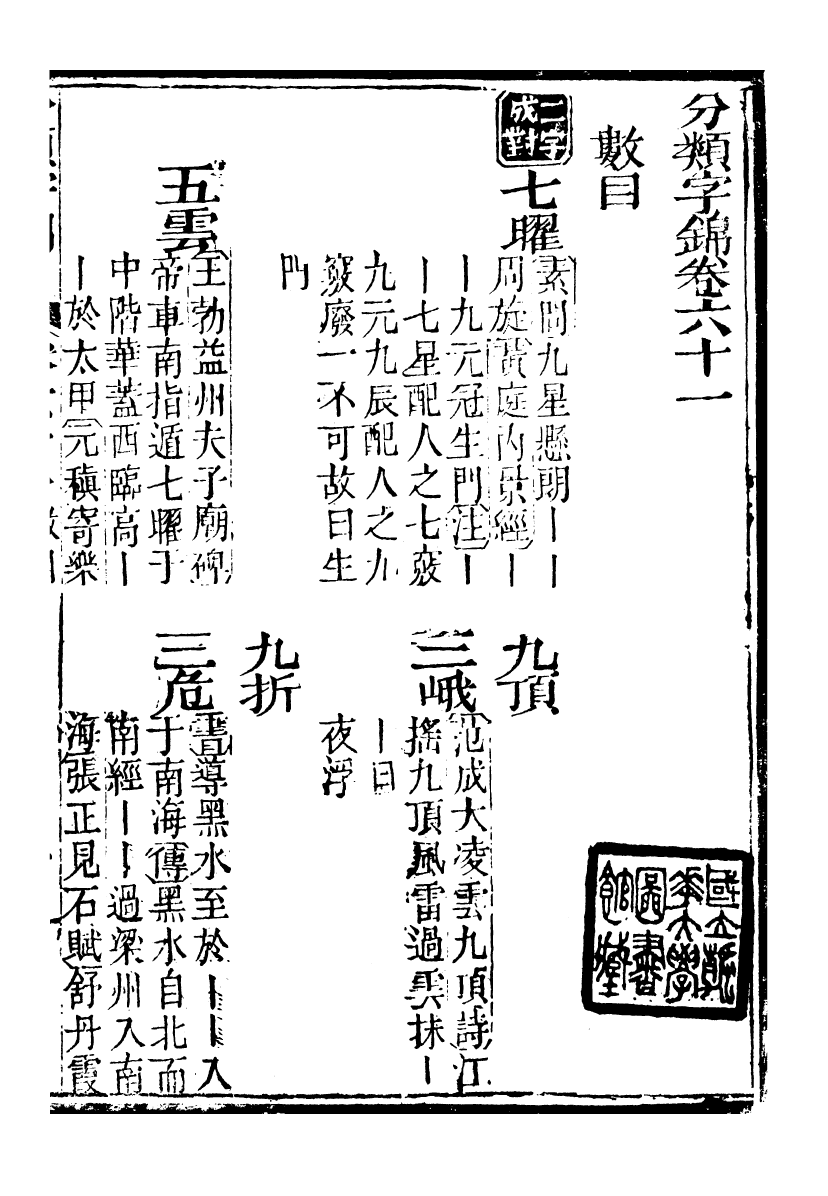 分類字錦卷六十一
數目
二字
成對
七曜
素問九星懸朗丨丨
周旋黃庭內景經丨
丨九元冠生門注丨
丨七星配人之七竅
九元九辰配人之九
竅廢一不可故曰生
門
五雲
王勃益州夫子廟碑
帝車南指遁七曜于
中階華蓋西臨高丨
丨於太甲元稹寄樂
九頂
三峨
范成大凌雲九頂詩江
搖九頂風雷過雲抹丨
丨日
夜浮
九折
三危
書導黑水至於丨丨入
于南海傳黑水自北而
南經丨丨過梁州入南
海張正見石賦舒丹霞
國立清
華大學
圖書
館藏